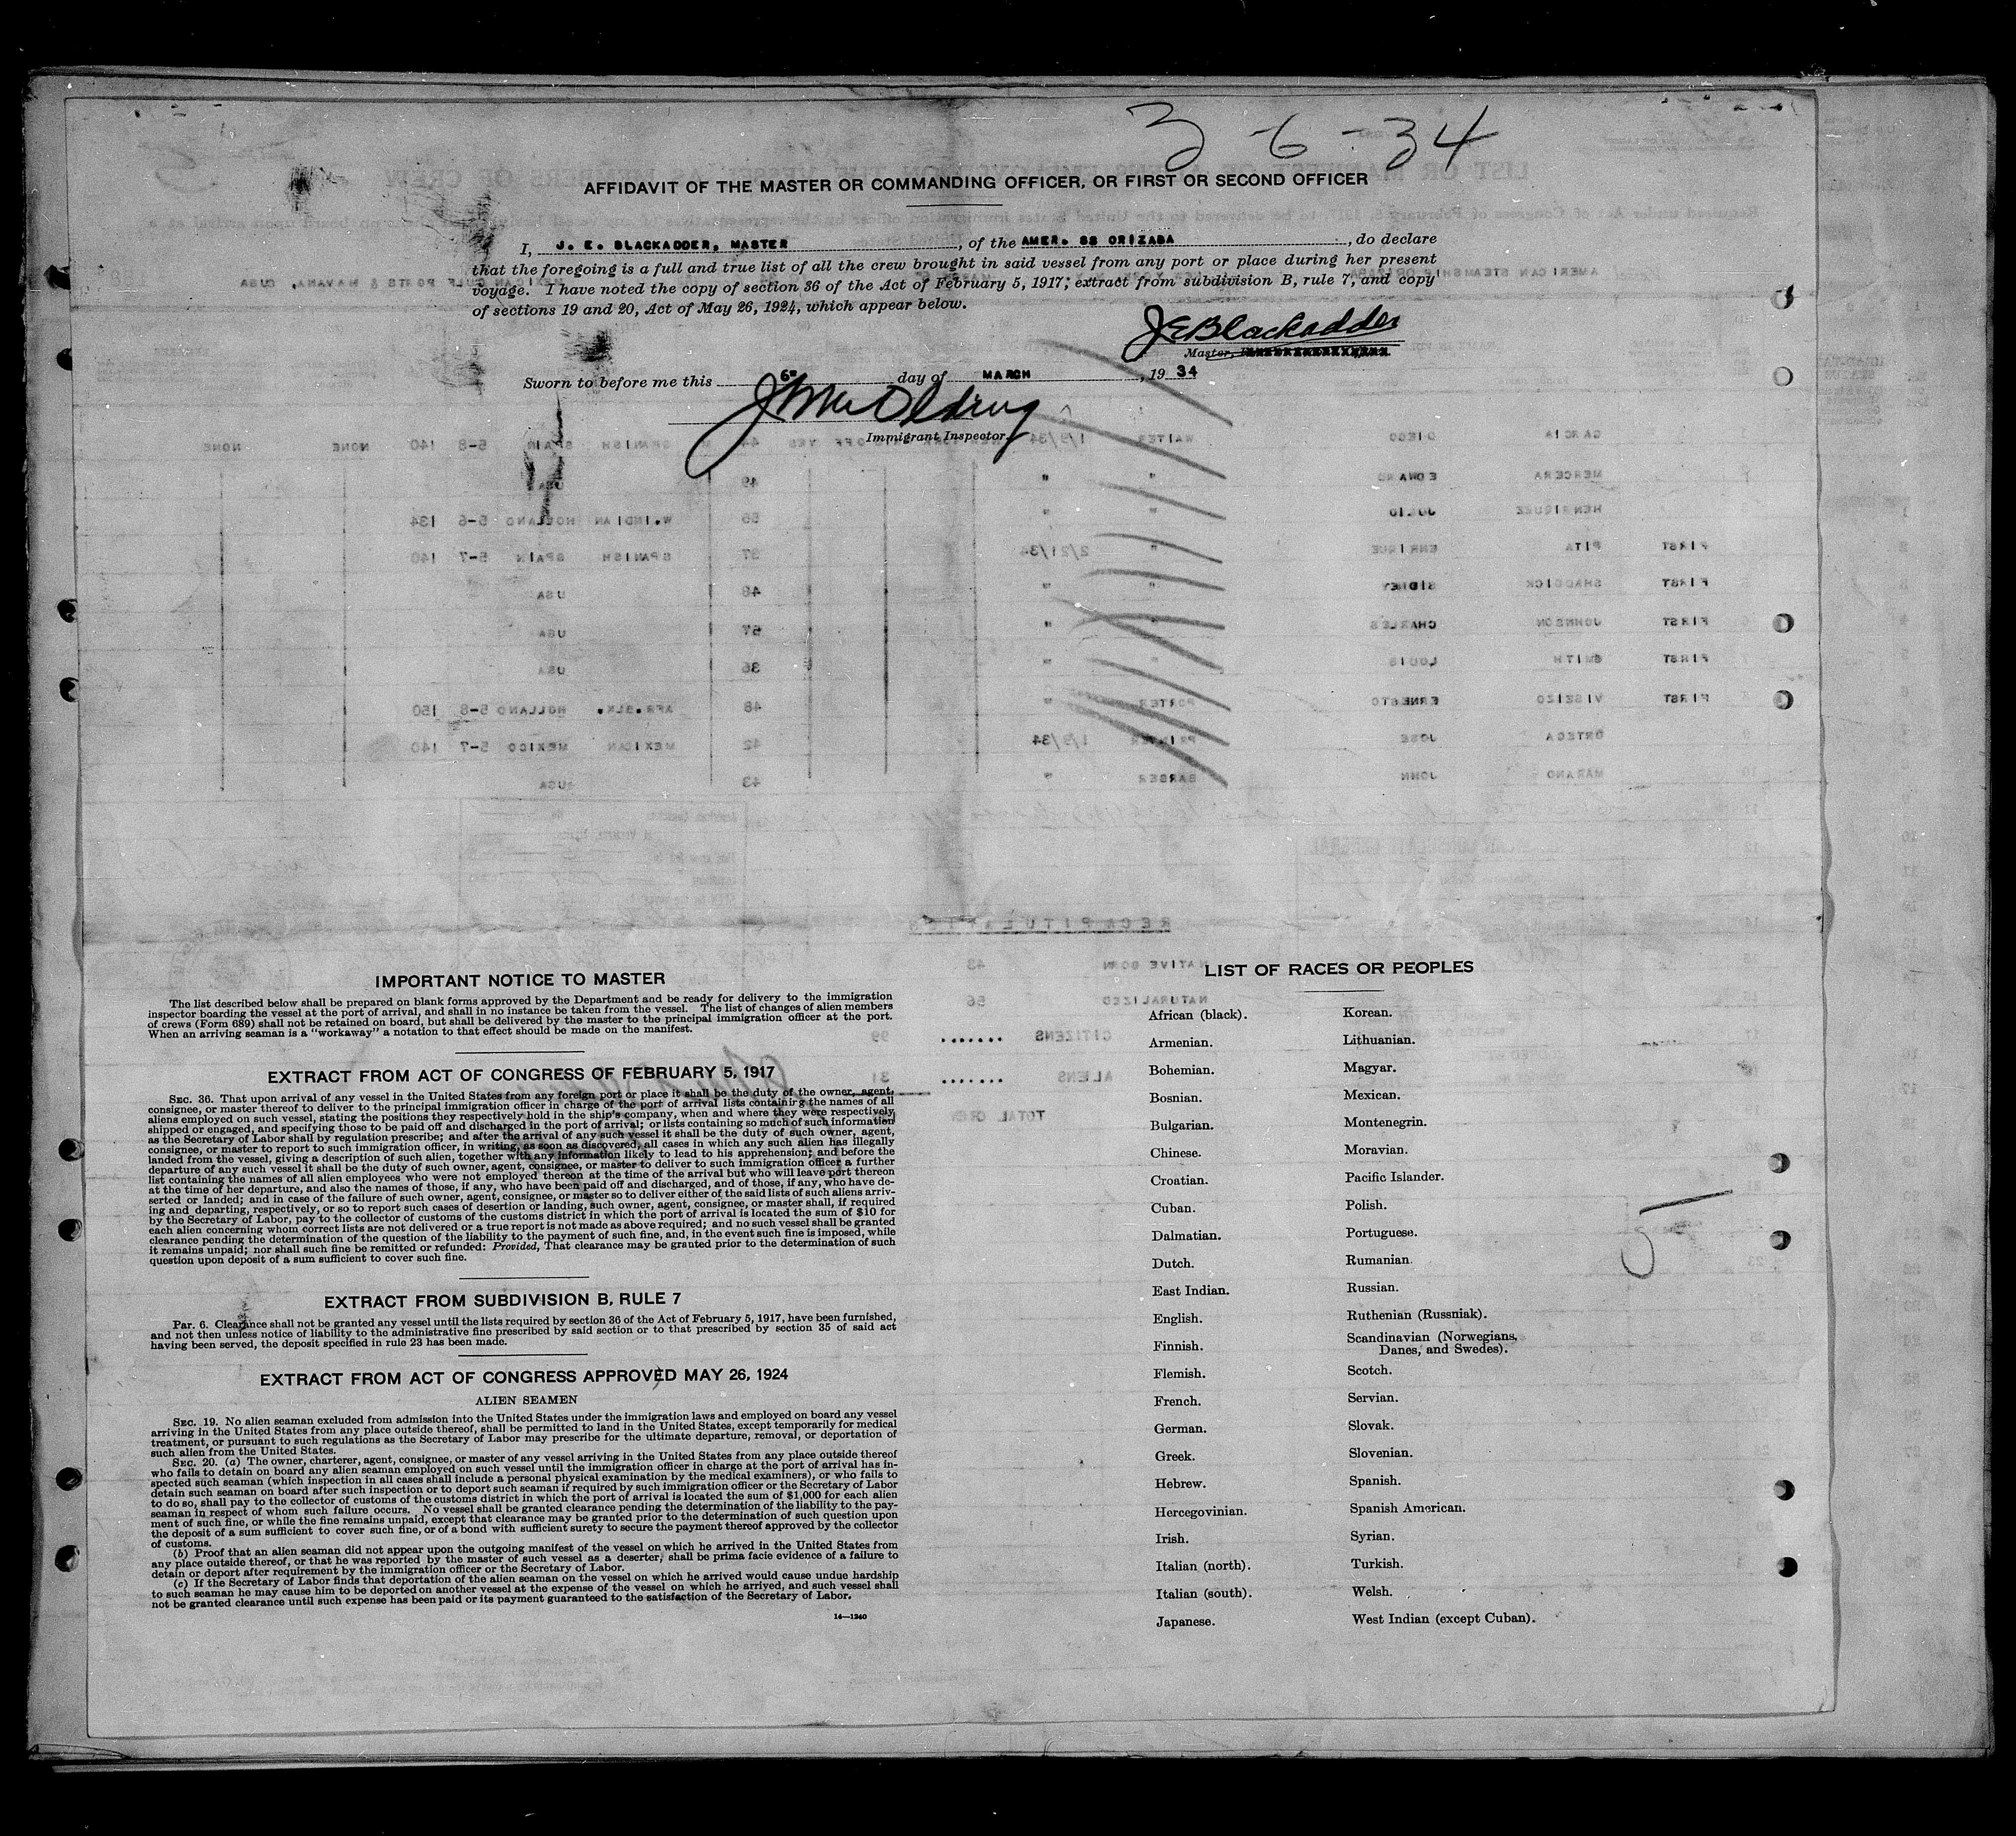 3-6-34
AFFIDAVIT OF THE MASTER OR COMMANDING OFFICER, OR FIRST OR SECOND OFFICER
I, J. E. BLACKADDER, MASTER, of the AMER. SS ORIZABA, do declare
that the foregoing is a full and true list of all the crew brought in said vessel from any port or place during her present
voyage. I have noted the copy of section 36 of the Act of February 5, 1917; extract from subdivision B, rule 7, and copy
of sections 19 and 20, Act of May 26, 1924, which appear below.
JEBlackadder
Master,
Sworn to before me this 6" day of MARCH, 19 34
Immigrant Inspector.
IMPORTANT NOTICE TO MASTER
The list described below shall be prepared on blank forms approved by the Department and be ready for delivery to the immigration
inspector boarding the vessel at the port of arrival, and shall in no instance be taken from the vessel. The list of changes of alien members
of crews (Form 689) shall not be retained on board, but shall be delivered by the master to the principal immigration officer at the port.
When an arriving seaman is a "workaway" a notation to that effect should be made on the manifest.
EXTRACT FROM ACT OF CONGRESS OF FEBRUARY 5, 1917
SEC. 36. That upon arrival of any vessel in the United States from any foreign port or place it shall be the duty of the owner, agent,
consignee, or master thereof to deliver to the principal immigration officer in charge of the port of arrival lists containing the names of all
aliens employed on such vessel, stating the positions they respectively hold in the ship's company, when and where they were respectively
shipped or engaged, and specifying those to be paid off and discharged in the port of arrival; or lists containing so much of such information
as the Secretary of Labor shall by regulation prescribe; and after the arrival of any such vessel it shall be the duty of such owner, agent,
consignee, or master to report to such immigration officer, in writing, as soon as discovered, all cases in which any such alien has illegally
landed from the vessel, giving a description of such alien, together with any information likely to lead to his apprehension; and before the
departure of any such vessel it shall be the duty of such owner, agent, consignee, or master to deliver to such immigration officer a further
list containing the names of all alien employees who were not employed thereon at the time of the arrival but who will leave port thereon
at the time of her departure, and also the names of those, if any, who have been paid off and discharged, and of those, if any, who have de-
serted or landed; and in case of the failure of such owner, agent, consignee, or master so to deliver either of the said lists of such aliens arriv-
ing and departing, respectively, or so to report such cases of desertion or landing, such owner, agent, consignee, or master shall, if required
by the Secretary of Labor, pay to the collector of customs of the customs district in which the port of arrival is located the sum of $10 for
each alien concerning whom correct lists are not delivered or a true report is not made as above required; and no such vessel shall be granted
clearance pending the determination of the question of the liability to the payment of such fine, and, in the event such fine is imposed, while
it remains unpaid; nor shall such fine be remitted or refunded: Provided, That clearance may be granted prior to the determination of such
question upon deposit of a sum sufficient to cover such fine.
EXTRACT FROM SUBDIVISION B, RULE 7
Par. 6. Clearance shall not be granted any vessel until the lists required by section 36 of the Act of February 5, 1917, have been furnished,
and not then unless notice of liability to the administrative fine prescribed by said section or to that prescribed by section 35 of said act
having been served, the deposit specified in rule 23 has been made.
EXTRACT FROM ACT OF CONGRESS APPROVED MAY 26, 1924
ALIEN SEAMEN
SEC. 19. No alien seaman excluded from admission into the United States under the immigration laws and employed on board any vessel
arriving in the United States from any place outside thereof, shall be permitted to land in the United States, except temporarily for medical
treatment, or pursuant to such regulations as the Secretary of Labor may prescribe for the ultimate departure, removal, or deportation of
such alien from the United States.
SEC. 20. (a) The owner, charterer, agent, consignee, or master of any vessel arriving in the United States from any place outside thereof
who fails to detain on board any alien seaman employed on such vessel until the immigration officer in charge at the port of arrival has in-
spected such seaman (which inspection in all cases shall include a personal physical examination by the medical examiners), or who fails to
detain such seaman on board after such inspection or to deport such seaman if required by such immigration officer or the Secretary of Labor
to do so, shall pay to the collector of customs of the customs district in which the port of arrival is located the sum of $1,000 for each alien
seaman in respect of whom such failure occurs. No vessel shall be granted clearance pending the determination of the liability to the pay-
ment of such fine, or while the fine remains unpaid, except that clearance may be granted prior to the determination of such question upon
the deposit of a sum sufficient to cover such fine, or of a bond with sufficient surety to secure the payment thereof approved by the collector
of customs.
(b) Proof that an alien seaman did not appear upon the outgoing manifest of the vessel on which he arrived in the United States from
any place outside thereof, or that he was reported by the master of such vessel as a deserter, shall be prima facie evidence of a failure to
detain or deport after requirement by the immigration officer or the Secretary of Labor.
(c) If the Secretary of Labor finds that deportation of the alien seaman on the vessel on which he arrived would cause undue hardship
to such seaman he may cause him to be deported on another vessel at the expense of the vessel on which he arrived, and such vessel shall
not be granted clearance until such expense has been paid or its payment guaranteed to the satisfaction of the Secretary of Labor.
14—1240
LIST OF RACES OR PEOPLES
African (black).
Armenian.
Bohemian.
Bosnian.
Bulgarian.
Chinese.
Croatian.
Cuban.
Dalmatian.
Dutch.
East Indian.
English.
Finnish.
Flemish.
French.
German.
Greek.
Hebrew.
Hercegovinian.
Irish.
Italian (north).
Italian (south).
Japanese.
Korean.
Lithuanian.
Magyar.
Mexican.
Montenegrin.
Moravian.
Pacific Islander.
Polish.
Portuguese.
Rumanian.
Russian.
Ruthenian (Russniak).
Scandinavian (Norwegians,
Danes, and Swedes).
Scotch.
Servian.
Slovak.
Slovenian.
Spanish.
Spanish American.
Syrian.
Turkish.
Welsh.
West Indian (except Cuban).
5